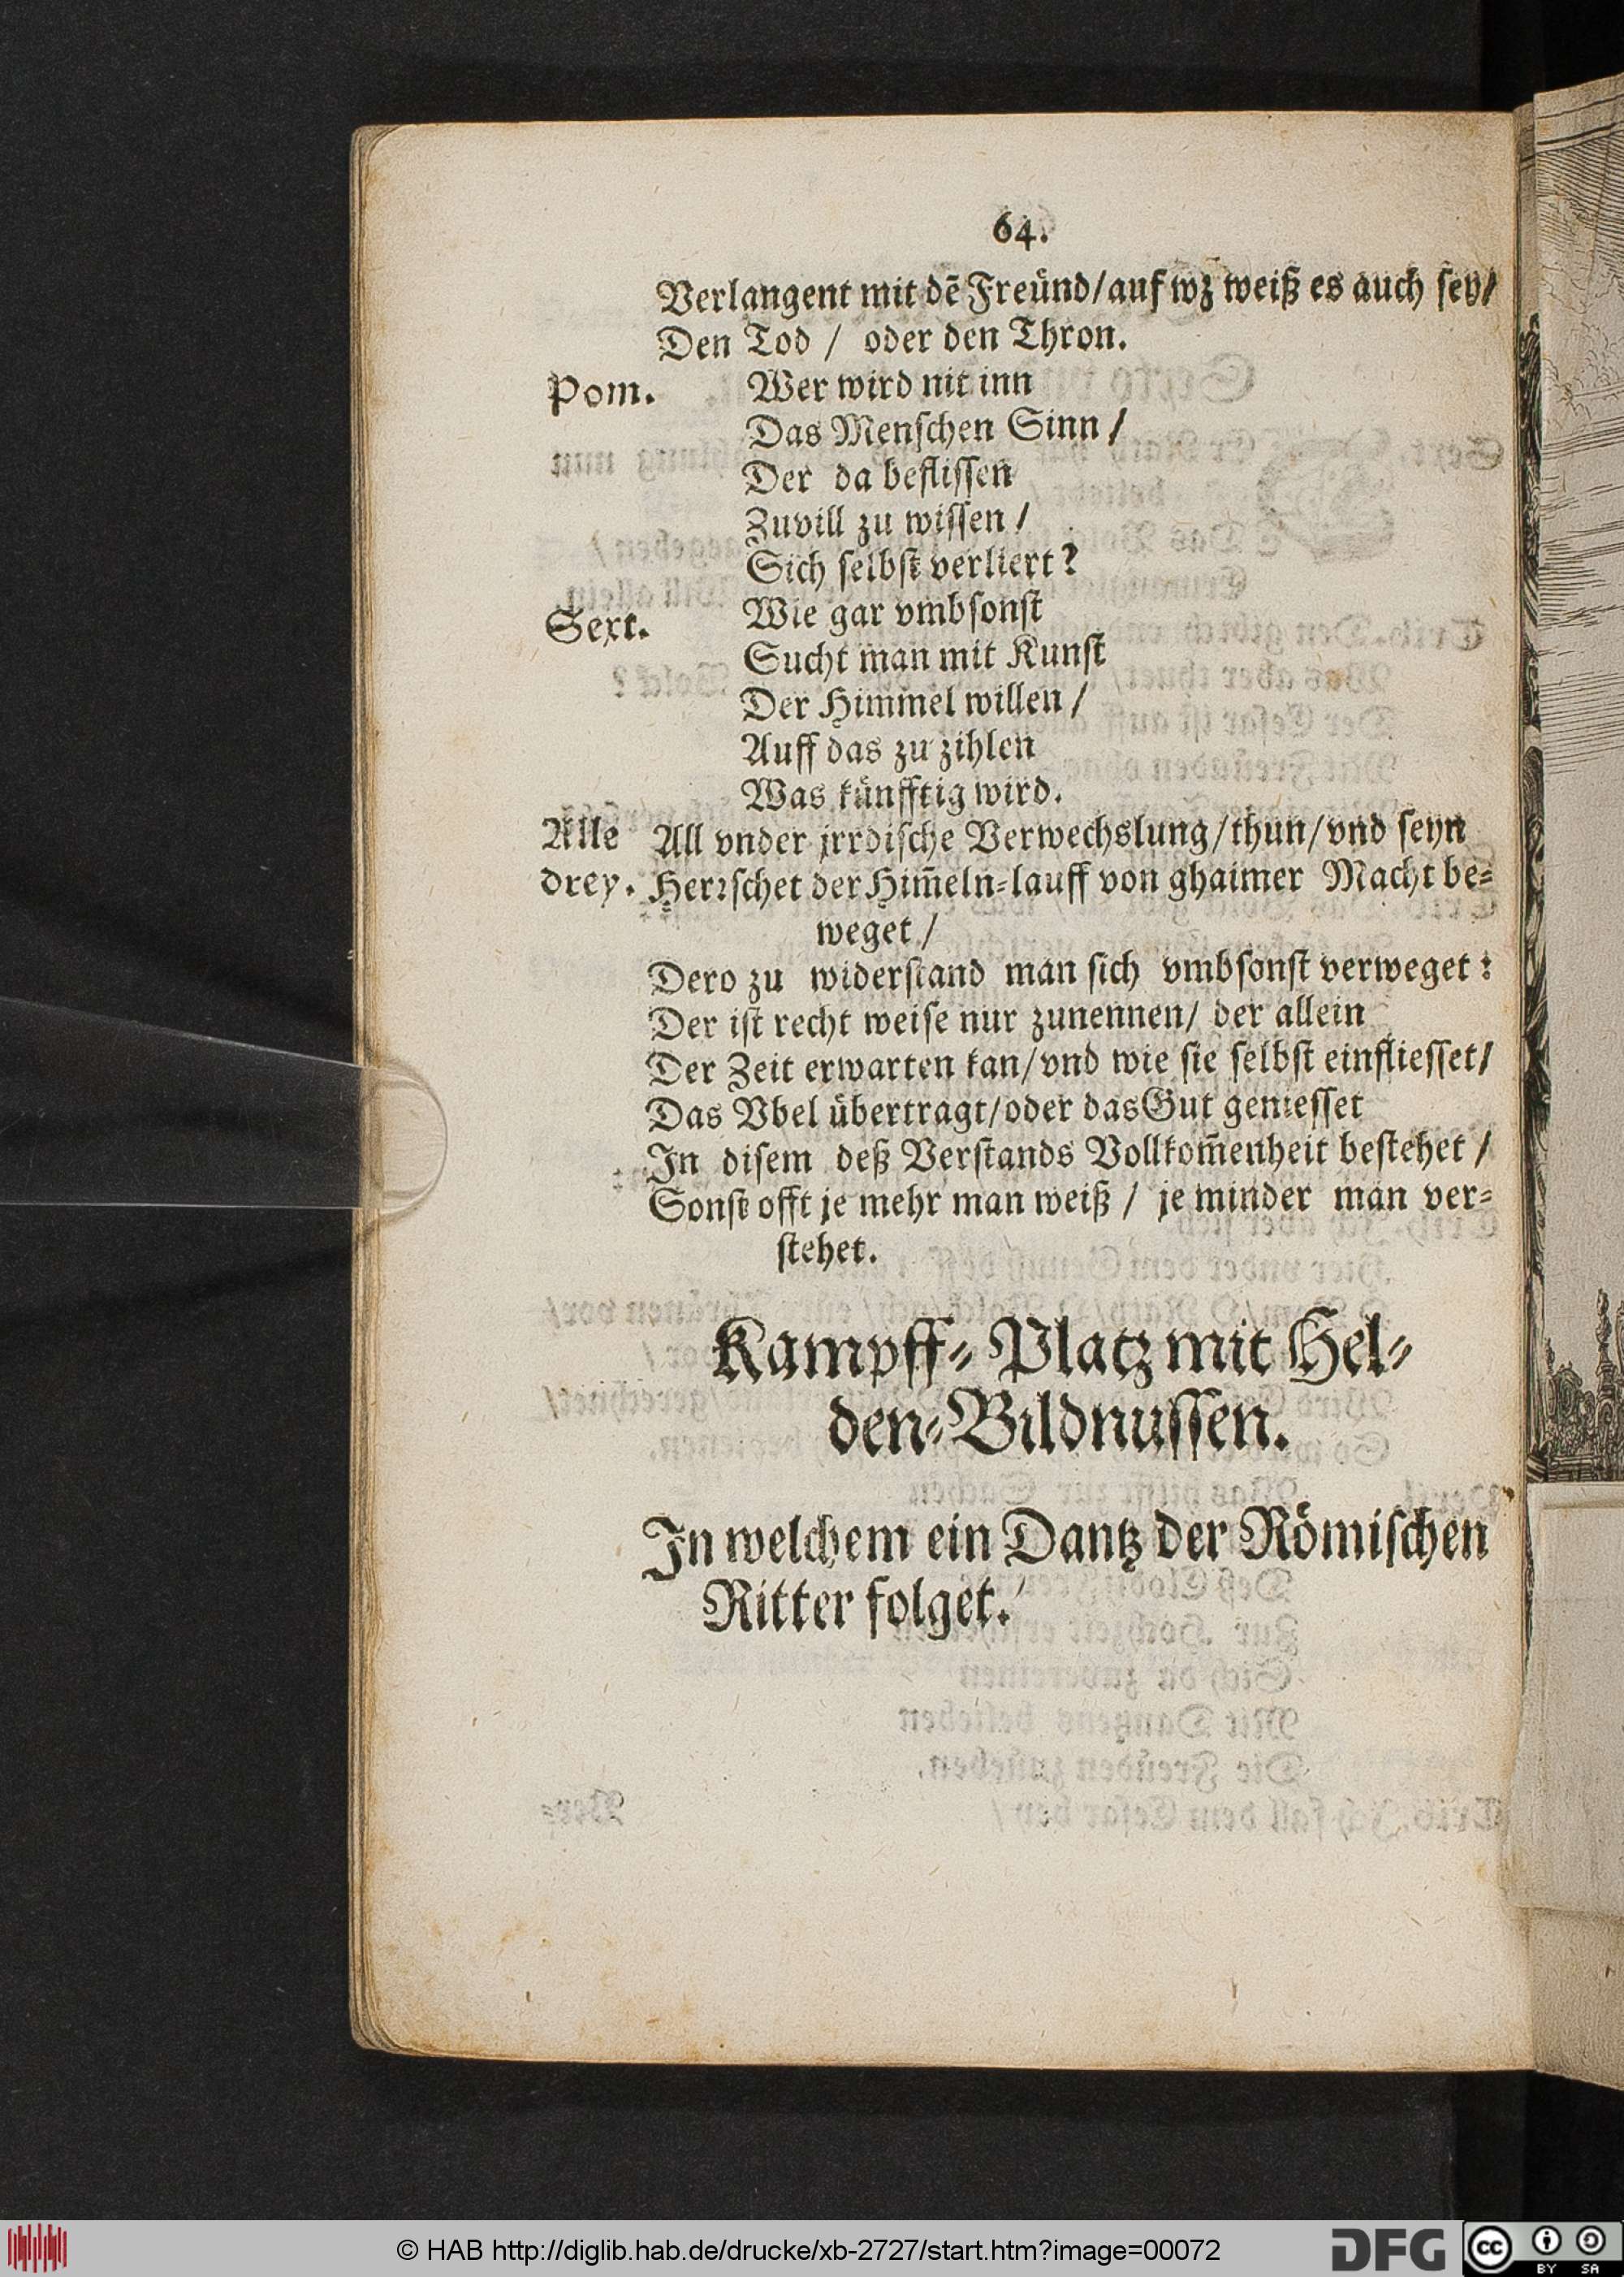 64.
Verlangent mit dē Freünd/auf wz weiß es auch sey/
Den Tod / oder den Thron.
Pom. Wer wird nit inn
Das Menschen Sinn /
Der da beflissen
Zuvill zu wissen /
Sich selbst verliert?
Sext. Wie gar vmbsonst
Sucht man mit Kunst
Der Himmel willen /
Auff das zu zihlen
Was künfftig wird.
Alle All vnder jrrdische Verwechslung/thun/vnd seyn
drey. Herrschet der Him̄eln-lauff von ghaimer Macht be-
weget /
Dero zu widerstand man sich vmbsonst verweget:
Der ist recht weise nur zunennen/ der allein
Der Zeit erwarten kan/vnd wie sie selbst einfliesset/
Das Vbel übertragt/oder das Gut geniesset
In disem deß Verstands Vollkom̄enheit bestehet /
Sonst offt je mehr man weiß / je minder man ver-
stehet.
Kampff-Platz mit Hel-
den-Bildnussen.
In welchem ein Dantz der Römischen
Ritter folget.
© HAB http://diglib.hab.de/drucke/xb-2727/start.htm?image=00072
DFG
cc BY SA